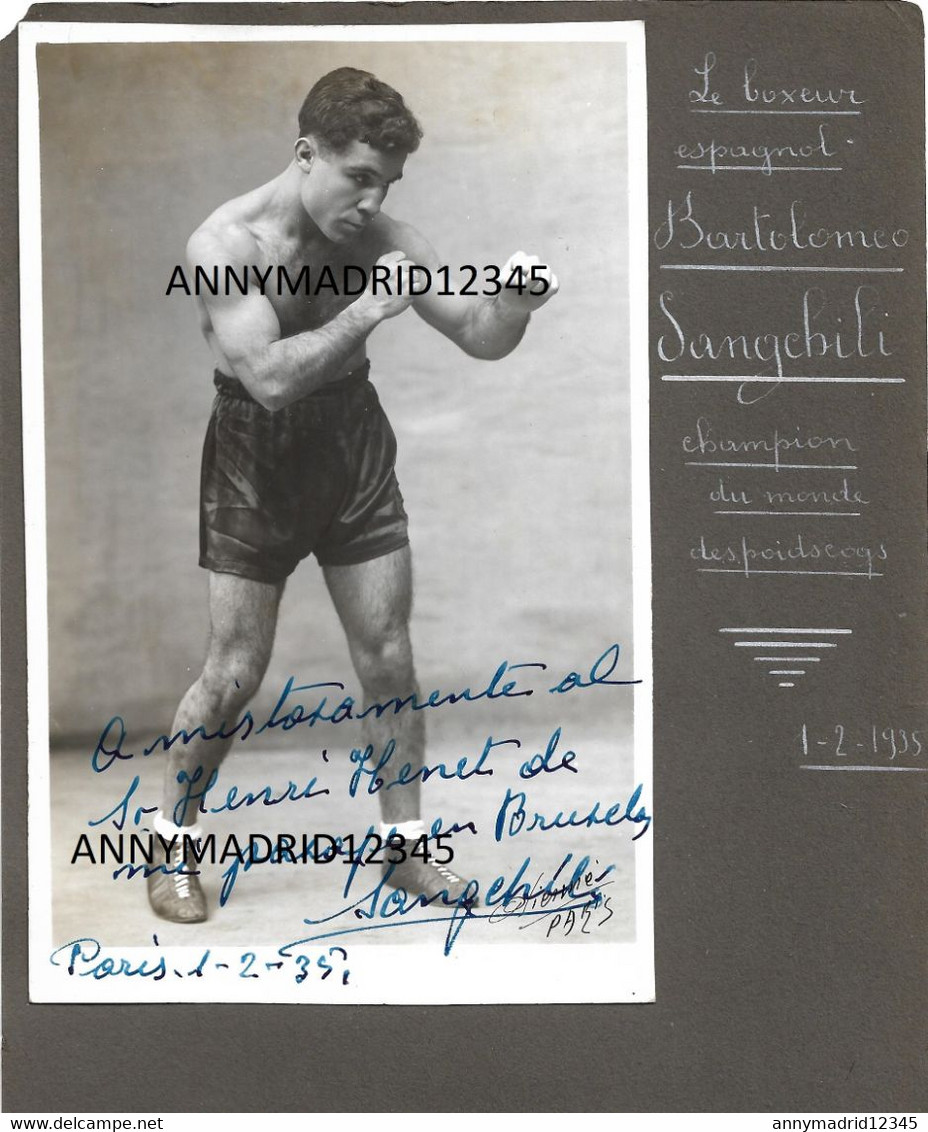 Le boxeur
espagnol
Bartolomeo
Sangchili
champion
du monde
des poids coqs
1-2-1935
ANNYMADRID12345
Amistosamente al
Sr Henri Henet de
mi pasaje en Bruselas
ANNYMADRID12345
Sangchili
PARIS
Paris. 1-2-35.
annymadrid12345
delcampe.net